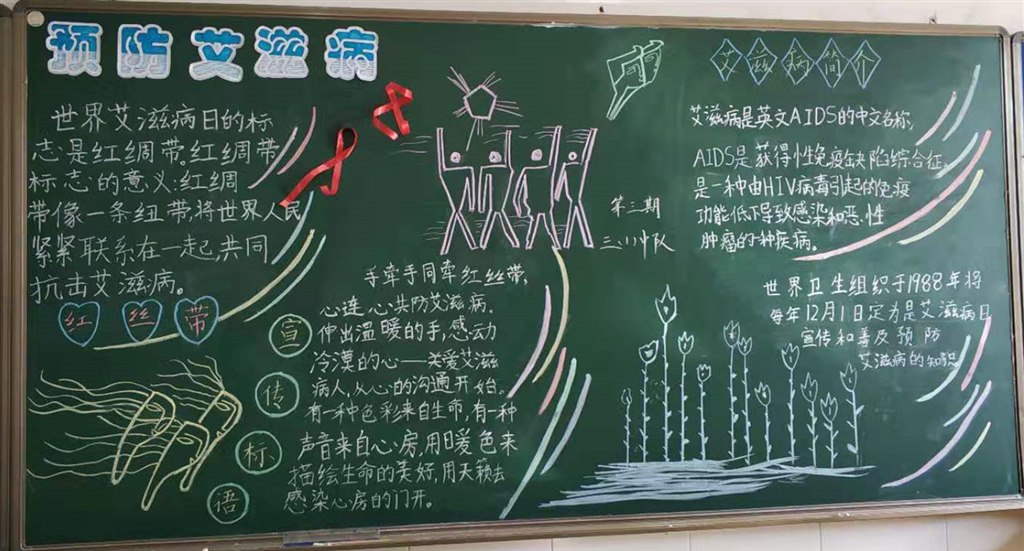 预防艾滋病
世界艾滋病日的标
志是红绸带,红绸带
标志的意义:红绸
带像一条纽带,将世界人民
紧紧联系在一起共同
抗击艾滋病。
红丝带
第三期
三、川中队
宣传标语
手牵手同牵红丝带,
心连心共防艾滋病.
伸出温暖的手,感动
冷漠的心——关爱艾滋
病人,从心的沟通开始。
有一种色彩来自生命,有一种
声音来自心房,用暖色来
描绘生命的美好,用天籁去
感染心房的门开。
艾滋病简介
艾滋病是英文AIDS的中文名称,
AIDS是获得性免疫缺陷综合征,
是一种由HIV病毒引起的免疫
功能低下导致感染和恶性
肿瘤的一种疾病。
世界卫生组织于1988年将
每年12月1日定为是艾滋病日
宣传和普及预防
艾滋病的知识